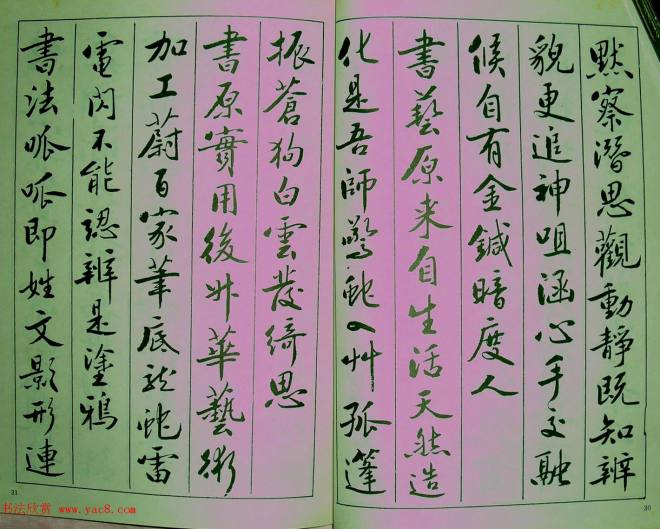 默察潛思觀動靜既知辨
貌更追神咀涵心手交融
候自有金鍼暗度人
書藝原来自生活天然造
化是吾師驚蛇入艸孤蓬
30
振蒼狗白雲發綺思
書原實用後升華藝術
加工蔚百家筆底龍蛇雷
電閃不能認辨是塗鴉
書法呱呱即姓文影形連
31
书法欣赏 www.yac8.com